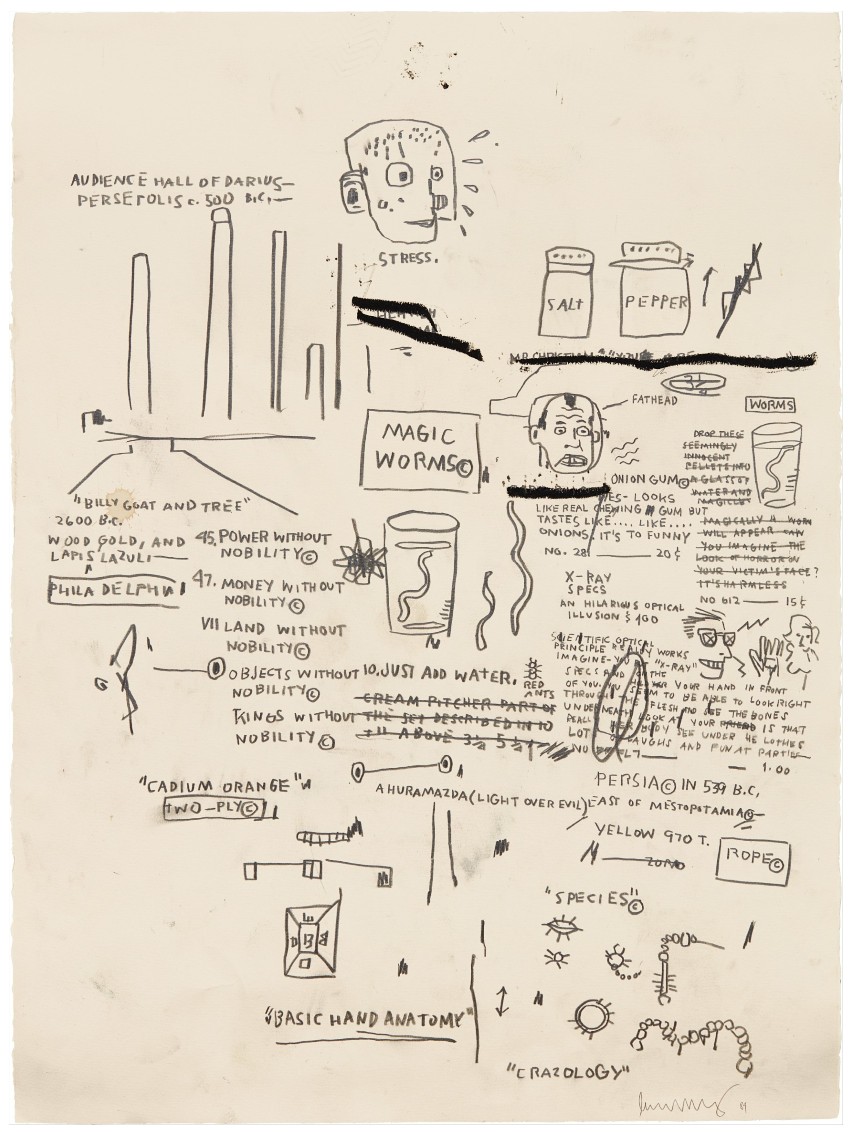 AUDIENCE HALL OF DARIUS—
PERSEPOLIS c. 500 B.C,—
STRESS.
SALT
PEPPER
3½
FATHEAD
WORMS
MAGIC
WORMS©
DROP THESE
SEEMINGLY
INNOCENT
PELLETS INTO
A GLASS OF
WATER AND
MAGICLLY
MAGICALLY A WORM
WILL APPEAR CAN
YOU IMAGINE THE
LOOK OF HORROR ON
YOUR VICTIM'S FACE?
IT'S HARMLESS
NO 612 — 15¢
ONION GUM©
YES- LOOKS
LIKE REAL CHEWING GUM BUT
TASTES LIKE.... LIKE....
ONIONS. IT'S TO FUNNY
NO. 28 — 20¢
X-RAY
SPECS
AN HILARIOUS OPTICAL
ILLUSION $ 100
SCIENTIFIC OPTICAL
PRINCIPLE REALLY WORKS
IMAGINE-YOU "X-RAY"
SPECS AND
YOUR HAND IN FRONT
OF YOU. SEEM TO BE ABLE TO LOOK RIGHT
THROUGH THE FLESH AND SEE THE BONES
UNDERNEATH LOOK AT YOUR FRIEND IS THAT
REALLY HER BODY SEE UNDER HE LOTHES
LOT LAUGHS AND FUN AT PARTIE
NO
— 1.00
"BILLY GOAT AND TREE"
2600 B.C.
WOOD GOLD, AND
LAPIS LAZULI—
PHILA DELPHIA
45. POWER WITHOUT
NOBILITY©
47. MONEY WITHOUT
NOBILITY©
VII LAND WITHOUT
NOBILITY©
OBJECTS WITHOUT
NOBILITY©
KINGS WITHOUT
NOBILITY©
10. JUST ADD WATER.
CREAM PITCHER PART OF
THE SET DESCRIBED IN 10
ABOVE 3½ 5½
RED
ANTS
"CADIUM ORANGE"
TWO-PLY©
AHURAMAZDA (LIGHT OVER EVIL)
PERSIA© IN 539 B.C,
EAST OF MESTOPOTAMIA©—
YELLOW 970 T.
ROPE©
"SPECIES"©
"BASIC HAND ANATOMY"
"CRAZOLOGY"